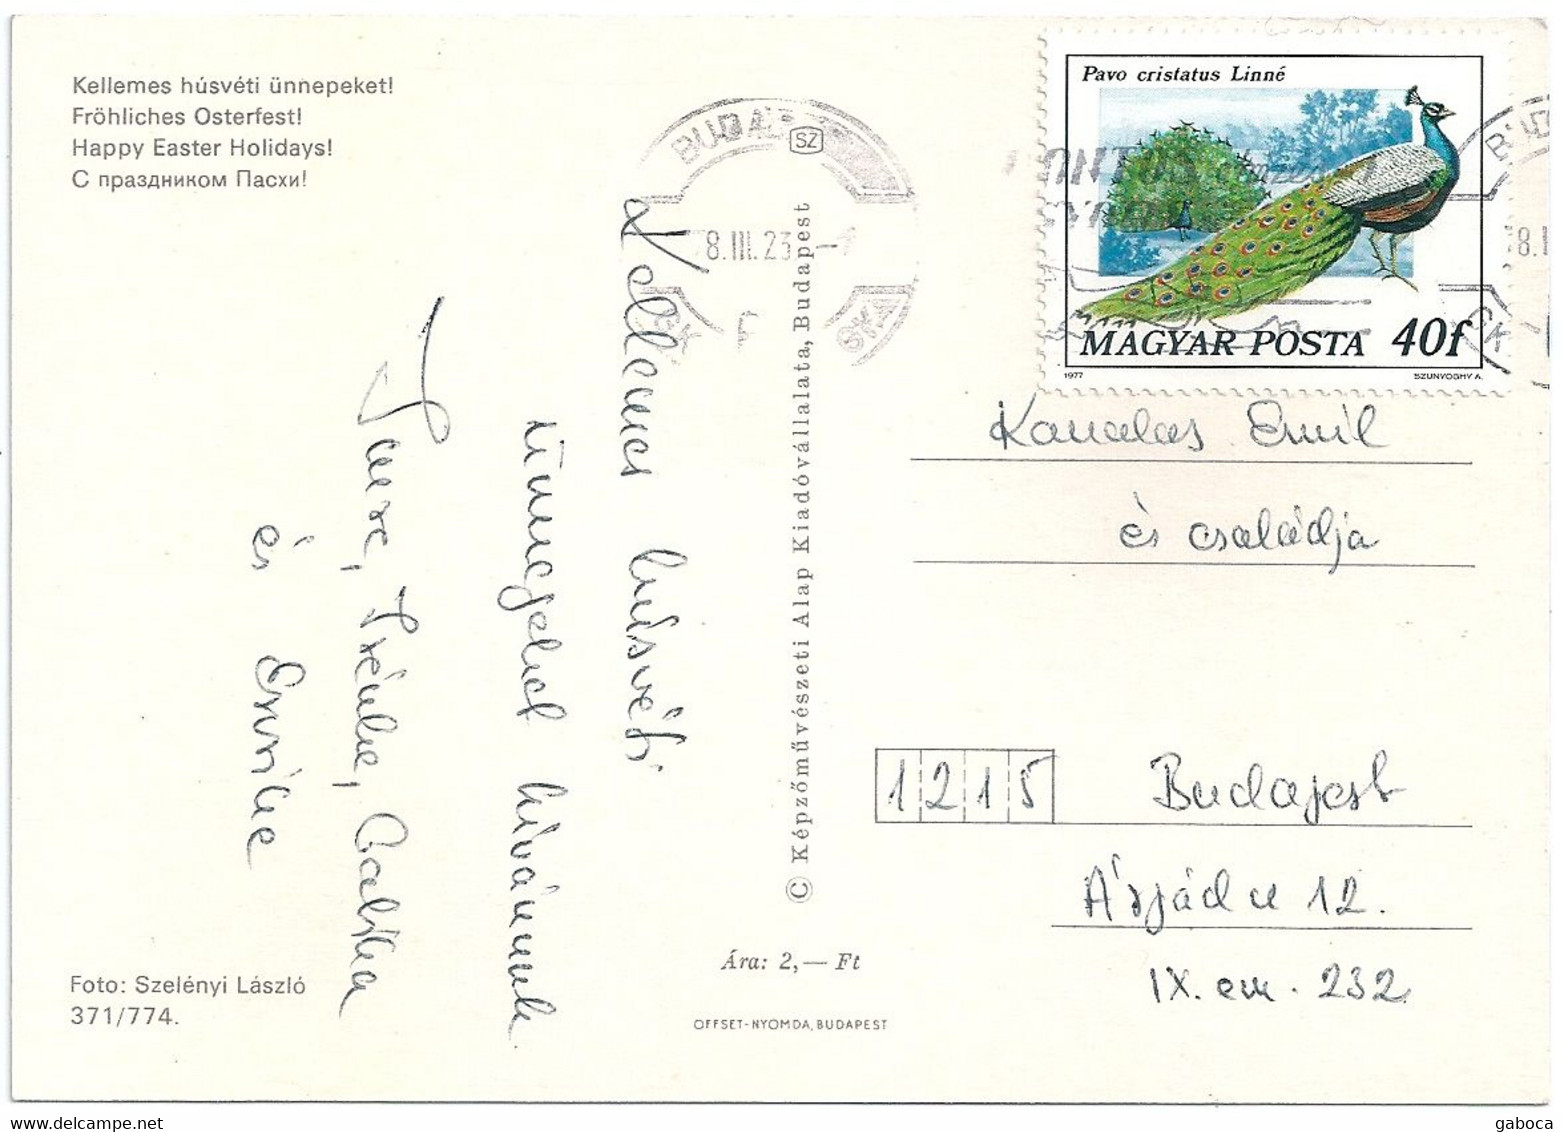 Kellemes húsvéti ünnepeket!
Fröhliches Osterfest!
Happy Easter Holidays!
С праздником Пасхи!
Kellemes húsvéti
ünnepeket kívánunk
Imre, Irénke, Csabika
és Emike
Foto: Szelényi László
371/774.
© Képzőművészeti Alap Kiadóvállalata, Budapest
Ára: 2,— Ft
OFFSET-NYOMDA, BUDAPEST
SZ
BUDAP
8.III.23
SKA
Pavo cristatus Linné
MAGYAR POSTA 40f
1977 SZUNYOGHY A.
8.I
Kanalas Emil
és családja
1215 Budapest
Árpád u 12.
IX. em. 232
gaboca